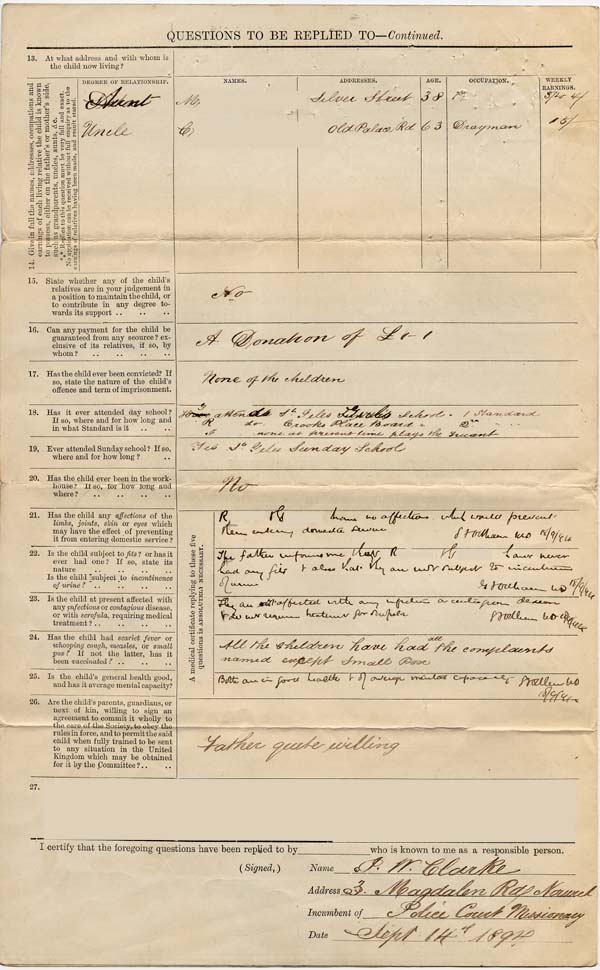 QUESTIONS TO BE REPLIED TO—Continued.
13. At what address and with whom is
the child now living?
14. Give in full the names, addresses, occupations and
earnings of each living relative the child is known
to possess, either on the father's or mother's side,
such as grandparents, uncles, aunts, &c.
*** Replies to this question must be very full and exact.
No application can be received without full enquiry as to the
earnings of relatives having been made, and result stated.
DEGREE OF RELATIONSHIP. NAMES. ADDRESSES. AGE. OCCUPATION. WEEKLY EARNINGS.
Aunt M Silver Street 38
Uncle C Old Palace Rd 63 Drayman 15/
15. State whether any of the child's
relatives are in your judgement in
a position to maintain the child, or
to contribute in any degree to-
wards its support .. .. ..
No
16. Can any payment for the child be
guaranteed from any source? ex-
clusive of its relatives, if so, by
whom? .. .. .. ..
A Donation of £1-1
17. Has the child ever been convicted? If
so, state the nature of the child's
offence and term of imprisonment.
None of the children
18. Has it ever attended day school?
If so, where and for how long and
in what Standard is it .. ..
attends St Giles Girls School - 1 Standard
R do Crooks Place Board " 2nd "
none at present time plays the Truant
19. Ever attended Sunday school? If so,
where and for how long? ..
Yes St Giles Sunday School
20. Has the child ever been in the work-
house? If so, for how long and
where? .. .. .. ..
No
A medical certificate replying to these five
questions is ABSOLUTELY NECESSARY.
21. Has the child any affections of the
limbs, joints, skin or eyes which
may have the effect of preventing
it from entering domestic service?
R H have no affections which would prevent
them entering domestic service
22. Is the child subject to fits? or has it
ever had one? If so, state its
nature .. .. .. ..
Is the child subject to incontinence
of urine? .. .. .. ..
The father informs me that R H have never
had any fits & also that they are not subject to incontinence
of urine
23. Is the child at present affected with
any infectious or contagious disease,
or with scrofula, requiring medical
treatment? .. .. .. ..
They are not affected with any infectious or contagious disease
& do not require treatment for Scrofula
24. Has the child had scarlet fever or
whooping cough, measles, or small
pox? If not the latter, has it
been vaccinated? .. .. ..
All the children have had all the complaints
named except Small Pox
25. Is the child's general health good,
and has it average mental capacity?
Both are in good health & of average mental capacity
26. Are the child's parents, guardians, or
next of kin, willing to sign an
agreement to commit it wholly to
the care of the Society, to obey the
rules in force, and to permit the said
child when fully trained to be sent
to any situation in the United
Kingdom which may be obtained
for it by the Committee? .. ..
Father quite willing
27.
I certify that the foregoing questions have been replied to by who is known to me as a responsible person.
(Signed,) Name J. W. Clarke
Address 3. Magdalen Rd
Incumbent of Police Court Missionary
Date Sept 14th 1894